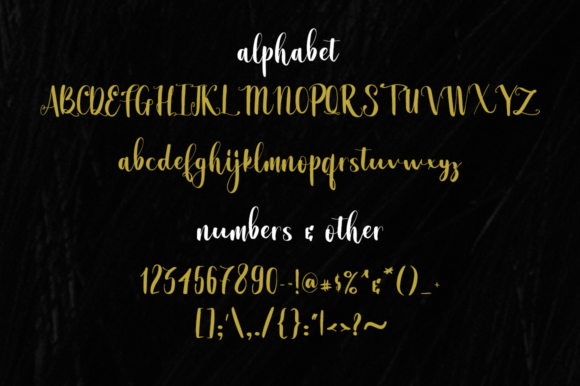 alphabet
ABCDEFGHIJKLMNOPQRSTUVWXYZ
abcdefghijklmnopqrstuvwxyz
numbers & other
1234567890--!@#$%^&*()_+
[];'\,./{}:"|<>?~